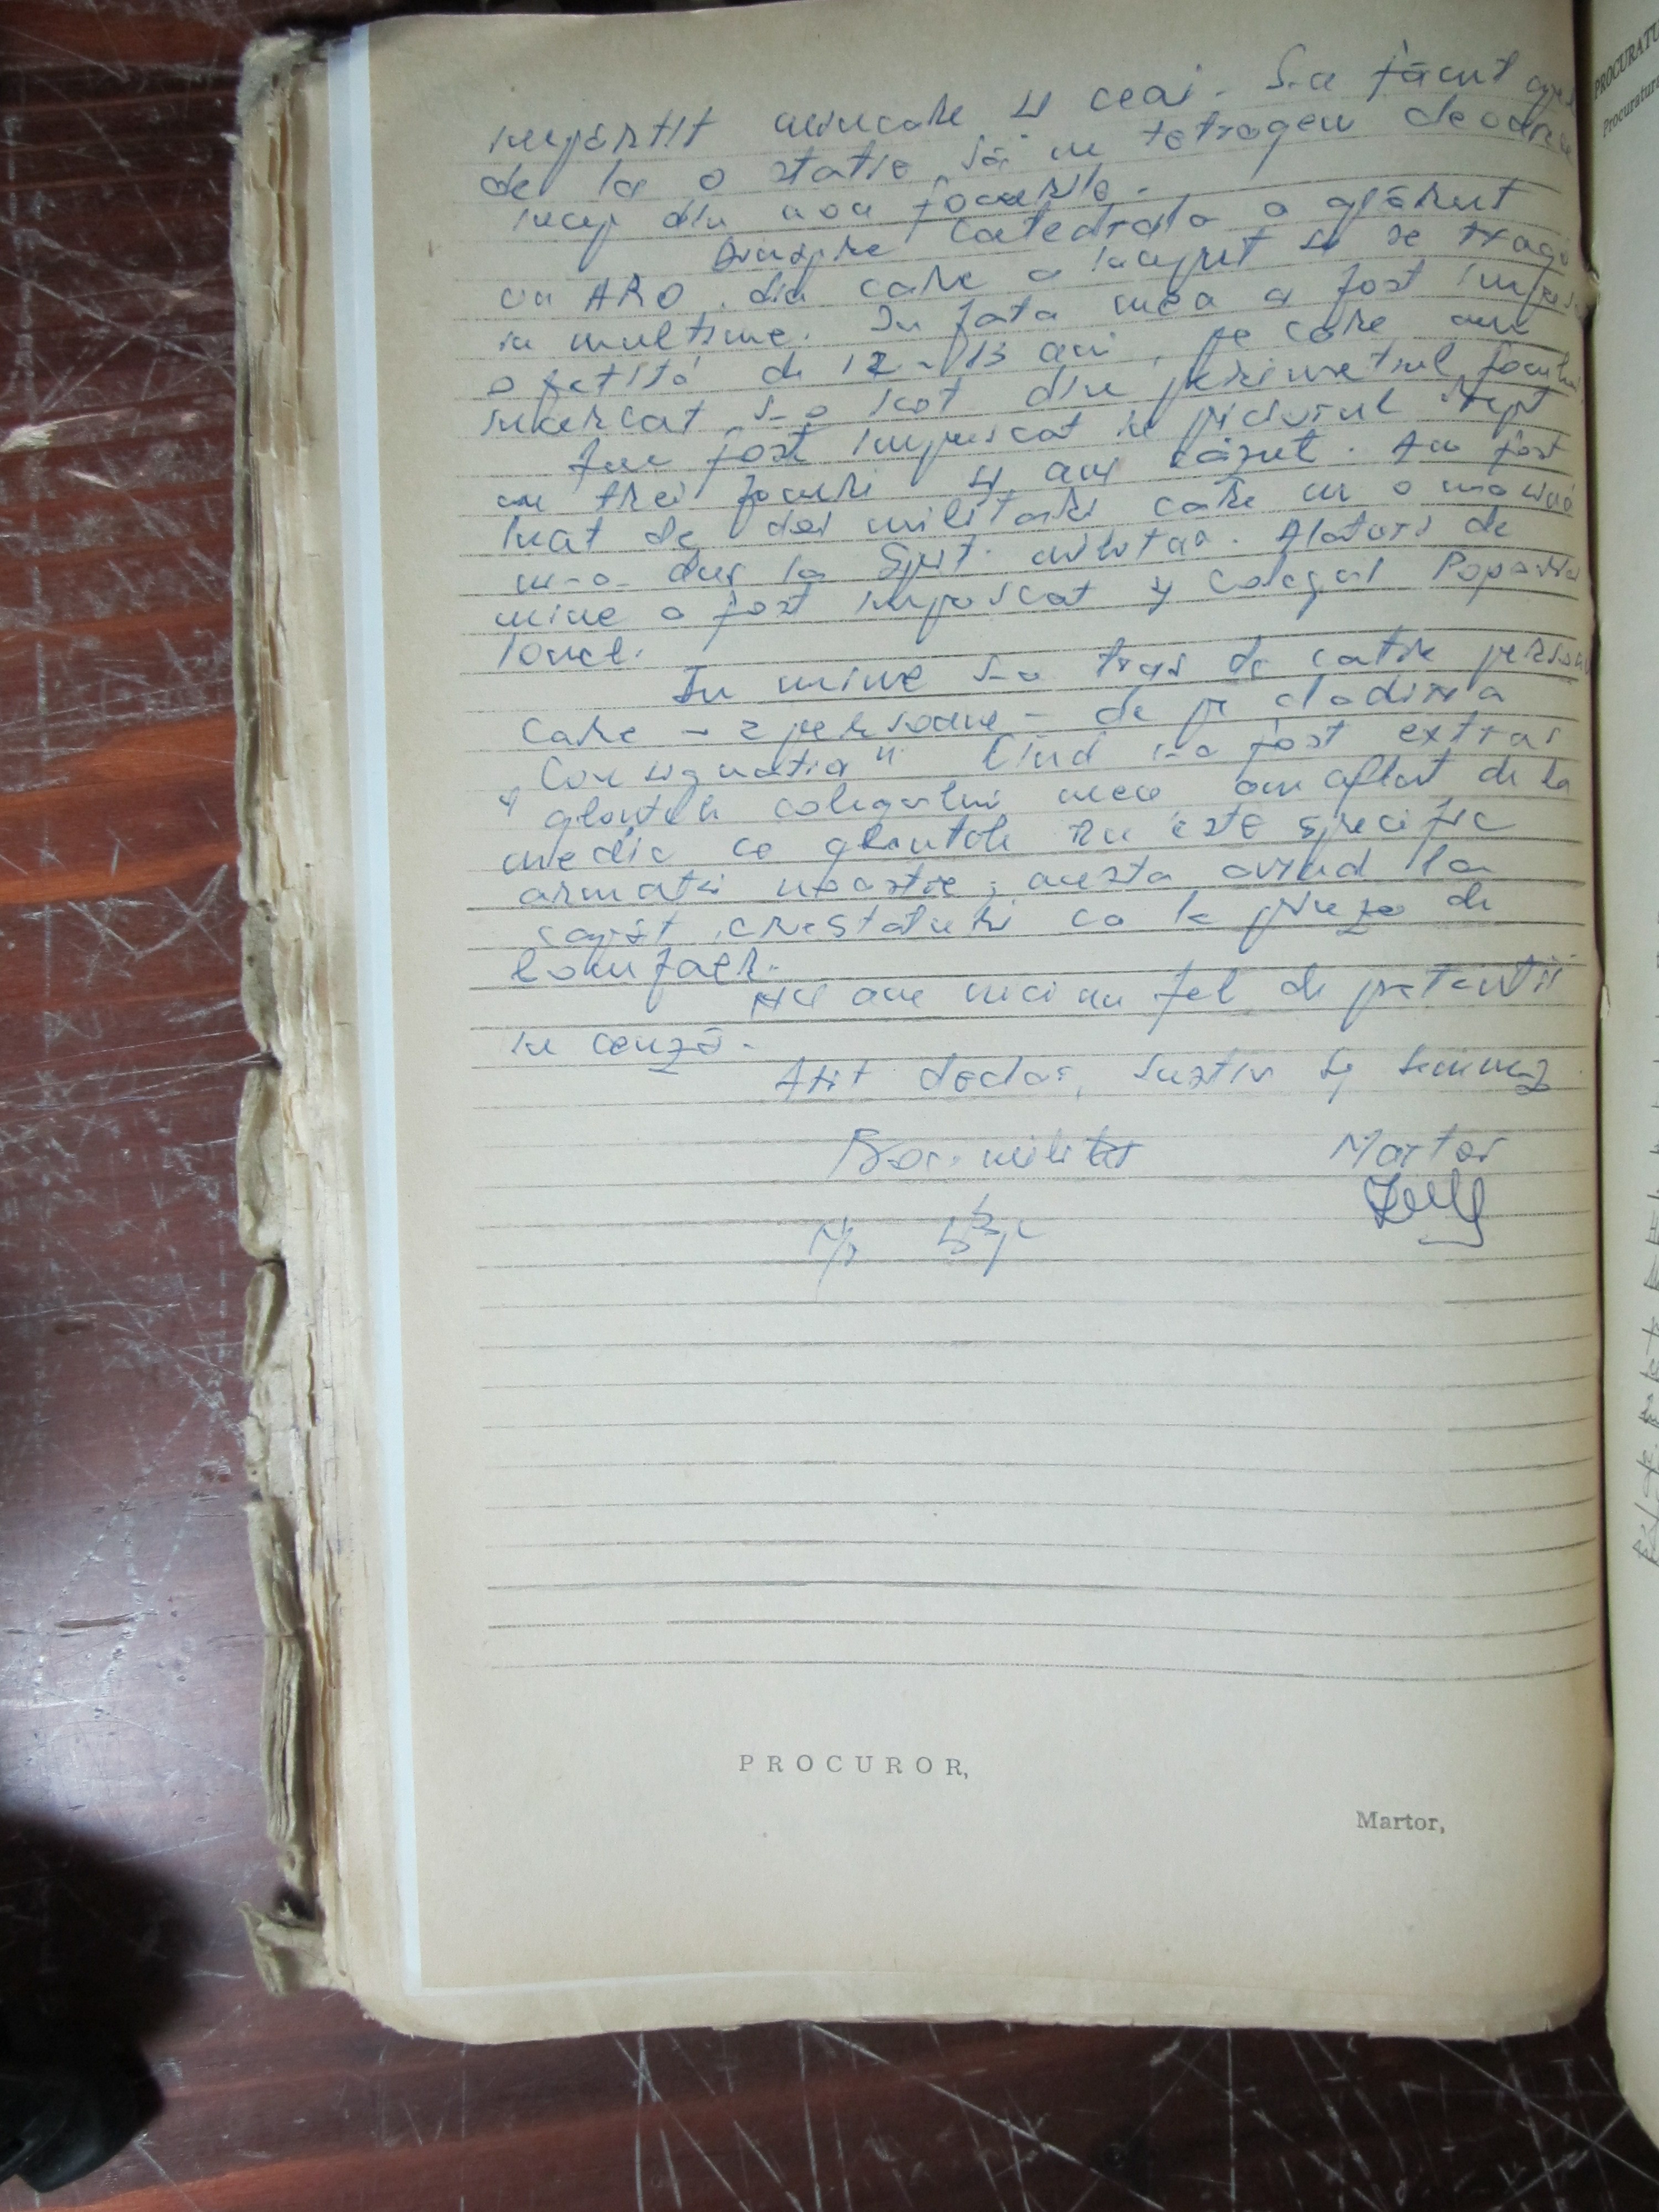 împărtit mîncare și ceai. S-a făcut apel
de la o statie să ne retragem deoarece
încep din nou focurile.
Dinspre Catedrala a apărut
un ARO din care a început să se tragă
în multime. În fata mea a fost împus
o fetită de 12-13 ani, pe care am
încercat s-o scot din perimetrul focului
Am fost împuscat în piciorul drept
cu trei focuri și am căzut. Am fost
luat de doi militari care cu o masină
m-a dus la Spit. militar. Alaturi de
mine a fost împuscat și colegul Popovici
Ionel.
În mine s-a tras de catre persoa
care - 2 persoane - de pe cladirea
"Consignatia" Cînd s-a fost extras
glontele colegului meu am aflat de la
medic ca glontele nu este specific
armatei noastre, acesta avînd la
capăt crestaturi ca la freza de
bonfaer.
Nu am nici un fel de pretentii
în cauză.
Atît declar, sustin și semnez
Proc. militar Martor
PROCUROR,
Martor,
PROCURATU
Procuratura